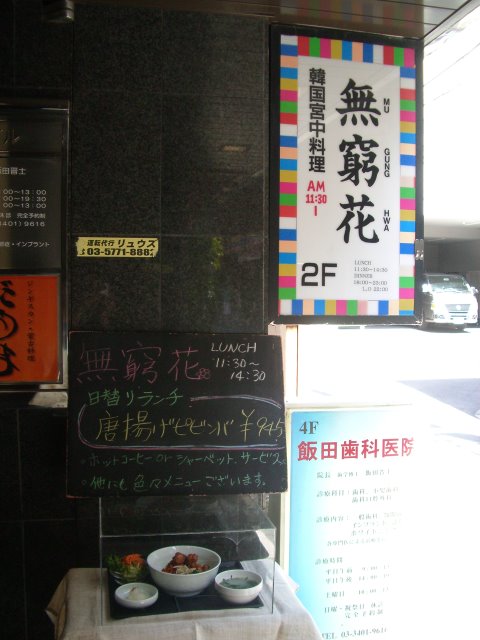 無窮花
MU
GUNG
HWA
韓国宮中料理
AM
11:30
LUNCH
11:30~14:30
DINNER
18:00~23:00
L.O 22:00
2F
運転代行 リュウズ
03-5771-888
00~13:00
00~19:30
00~13:00
完全予約制
401) 9616
・インプラント
ジンギスカン・蒙古料理
無窮花
LUNCH
11:30~
14:30
日替りランチ
唐揚げビビンバ ¥945
・ホットコーヒー or シャーベット、サービス
・他にも色々メニューございます。
4F
飯田歯科医院
診療科目
診療内容
診療時間
TEL 03-3401-961